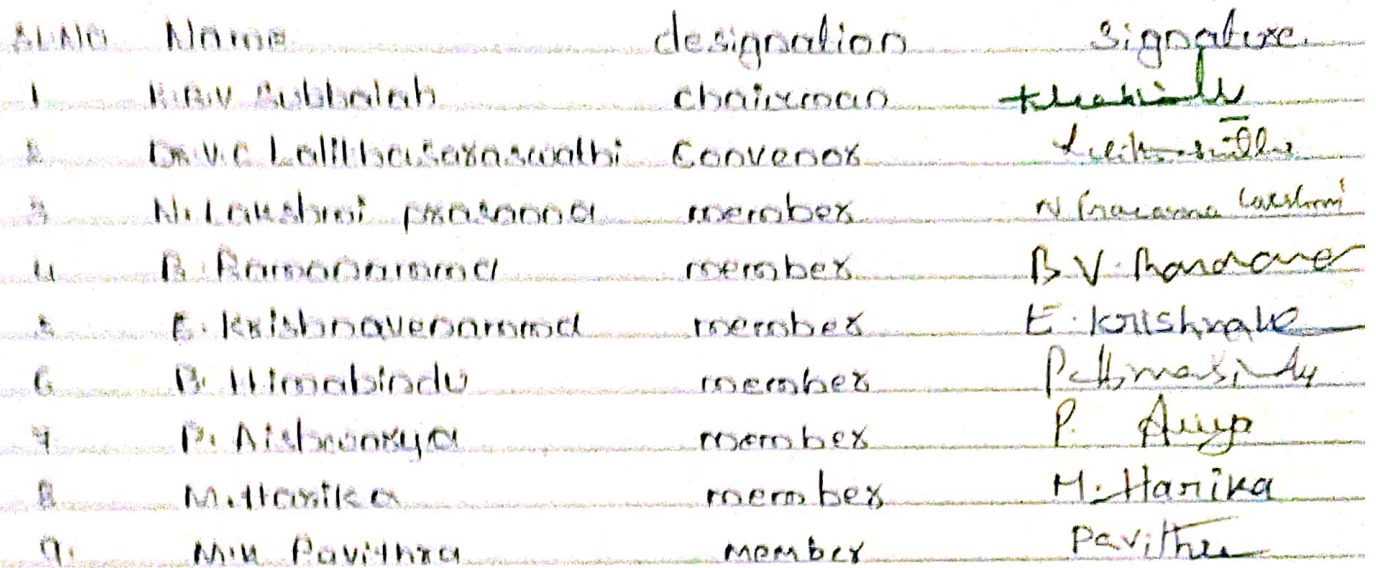 Sl.No Name designation Signature.
1 Subbaiah chairman
2 Dr. V.C Lalithasaraswathi Convenor
3 N. Lakshmi prasanna member N Prasanna Lakshmi
4 B. Ramanamma member B V.
5 E. Krishnavenamma member E. Krishnave
6 P. Himabindu member P. Himabindu
7 P. Aishwarya member P.
8 M. Harika member M. Harika
9. M.H Pavithra member Pavithra